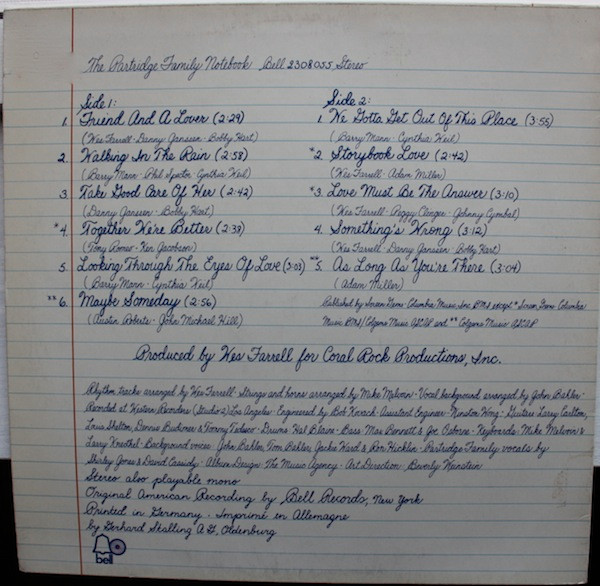 The Partridge Family Notebook Bell 2308055, Stereo
Side 1:
1. Friend And A Lover (2:29)
(Wes Farrell - Danny Janssen - Bobby Hart)
2. Walking In The Rain (2:58)
(Barry Mann - Phil Spector - Cynthia Weil)
3. Take Good Care Of Her (2:42)
(Danny Janssen - Bobby Hart)
*4. Together We're Better (2:39)
(Tony Romeo - Ken Jacobson)
5. Looking Through The Eyes Of Love (3:03)
(Barry Mann - Cynthia Weil)
**6. Maybe Someday (2:56)
(Austin Roberts - John Michael Hill)
Side 2:
1. We Gotta Get Out Of This Place (3:55)
(Barry Mann - Cynthia Weil)
*2 Storybook Love (2:42)
(Wes Farrell - Adam Miller)
*3. Love Must Be The Answer (3:10)
(Wes Farrell - Peggy Clinger - Johnny Cymbal)
4. Something's Wrong (3:12)
(Wes Farrell - Danny Janssen - Bobby Hart)
**5. As Long As You're There (3:04)
(Adam Miller)
Published by Screen Gems-Columbia Music, Inc. BMI except * Screen Gems-Columbia
Music BMI/Colgems Music ASCAP and ** Colgems Music ASCAP
Produced by Wes Farrell for Coral Rock Productions, Inc.
Rhythm tracks arranged by Wes Farrell - Strings and horns arranged by Mike Melvoin - Vocal background arranged by John Bahler -
Recorded at Western Recorders (Studio 2) Los Angeles - Engineered by Bob Kovach - Assistant Engineer - Winston Wong - Guitars Larry Carlton,
Louis Shelton, Dennis Budimer & Tommy Tedesco - Drums: Hal Blaine - Bass: Max Bennett & Joe Osborne - Keyboards: Mike Melvoin &
Larry Knechtel - Background voices: John Bahler, Tom Bahler, Jackie Ward & Ron Hicklin - Partridge Family vocals by
Shirley Jones & David Cassidy - Album Design: The Music Agency - Art Direction: Beverly Weinstein
Stereo also playable mono
Original American Recording by Bell Records, New York
Printed in Germany - Imprimé en Allemagne
by Gerhard Stalling A G, Oldenburg
bell